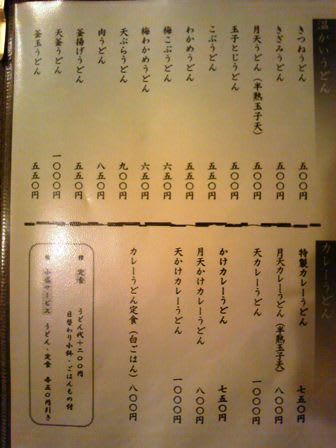 温かいうどん
きつねうどん 五〇〇円
きざみうどん 五〇〇円
月天うどん（半熟玉子天） 五五〇円
玉子とじうどん 五〇〇円
こぶうどん 五五〇円
わかめうどん 五五〇円
梅こぶうどん 六五〇円
梅わかめうどん 六五〇円
天ぷらうどん 九〇〇円
肉うどん 八五〇円
釜揚げうどん 五五〇円
天釜うどん 一〇〇〇円
釜玉うどん 五五〇円
カレーうどん
特製カレーうどん 七五〇円
月天カレーうどん（半熟玉子天） 八〇〇円
天カレーうどん 一〇〇〇円
かけカレーうどん 七五〇円
月天かけカレーうどん 八〇〇円
天かけカレーうどん 一〇〇〇円
カレーうどん定食（白ごはん） 八〇〇円
定食 うどん代＋二〇〇円
日替わり小鉢・ごはんもの付
サービス うどん・定食 各五〇円引き